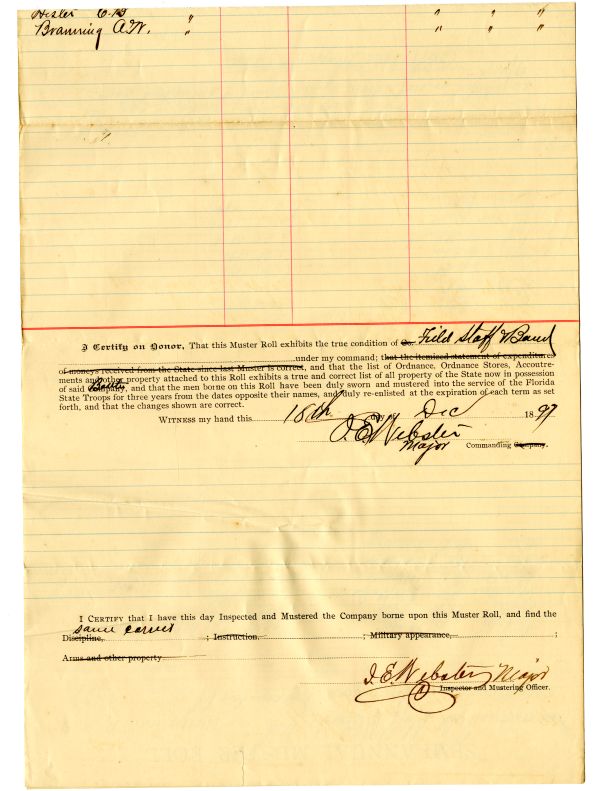 Hester C. B. " " " "
Branning A. W. " " " "
I Certify on Honor, That this Muster Roll exhibits the true condition of Co. Field Staff & Band
under my command; that the itemized statement of expenditures
of moneys received from the State since last Muster is correct, and that the list of Ordnance, Ordnance Stores, Accoutre-
ments and other property attached to this Roll exhibits a true and correct list of all property of the State now in possession
of said Company, and that the men borne on this Roll have been duly sworn and mustered into the service of the Florida
State Troops for three years from the dates opposite their names, and duly re-enlisted at the expiration of each term as set
forth, and that the changes shown are correct.
Witness my hand this 18th day of Dec 1897
J. E. Webster
Major Commanding Company.
I Certify that I have this day Inspected and Mustered the Company borne upon this Muster Roll, and find the
same correct
Discipline, ; Instruction, ; Military appearance, ;
Arms and other property
J. E. Webster Major
Inspector and Mustering Officer.